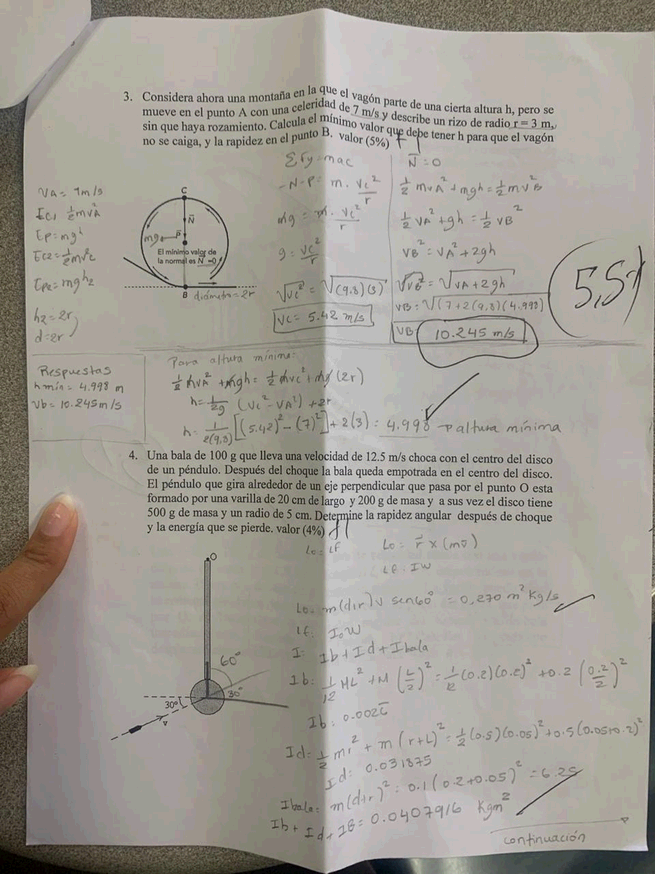 3. Considera ahora una montaña en la que el vagón parte de una cierta altura h, pero se
mueve en el punto A con una celeridad de 7 m/s y describe un rizo de radio r = 3 m,
sin que haya rozamiento. Calcula el mínimo valor que debe tener h para que el vagón
no se caiga, y la rapidez en el punto B. valor (5%)
VA = 7m/s
Ec1 ½mvA²
Ep=mgh
Ec2=½mv²c
Cpe=mgh2
h2=2r
d=2r
C
N
P
mg
El mínimo valor de
la normal es N =0
B diámetro=2r
ΣFy=mac
-N-P= m. Vc²/r
mg = m. Vc²/r
g= Vc²/r
√Vc² = √(9.8)(3)
Vc= 5.42 m/s
N=0
½mvA²+mgh=½mv²B
½VA²+gh=½VB²
VB²=VA²+2gh
√VB²=√VA+2gh
VB=√(7+2(9,8)(4.998)
VB 10.245 m/s
Respuestas
hmín= 4.998 m
Vb= 10.245m/s
Para altura mínima:
½mVA²+mgh=½mvc²+mg(2r)
h=1/2g (Vc²-VA²)+2r
h=1/2(9,8) [(5.42)²-(7)²]+2(3)=4.998→altura mínima
4. Una bala de 100 g que lleva una velocidad de 12.5 m/s choca con el centro del disco
de un péndulo. Después del choque la bala queda empotrada en el centro del disco.
El péndulo que gira alrededor de un eje perpendicular que pasa por el punto O esta
formado por una varilla de 20 cm de largo y 200 g de masa y a sus vez el disco tiene
500 g de masa y un radio de 5 cm. Determine la rapidez angular después de choque
y la energía que se pierde. valor (4%)
Lo=LF
Lo= r x (mv)
LF=IW
O
60°
30°
30°
v
Lo= m(d+r)v sen60° = 0,270 m²Kg/s
LF= IoW
I= Ib+Id+Ibala
Ib=1/12 ML²+M(L/2)²=1/12(0.2)(0.2)²+0.2(0.2/2)²
Ib=0.0026
Id=½mr²+m(r+L)²=½(0.5)(0.05)²+0.5(0.05+0.2)²
Id=0.031875
Ibala=m(d+r)²=0.1(0.2+0.05)²=6.25
Ib+Id+IB=0.0407916 Kgm²
continuación